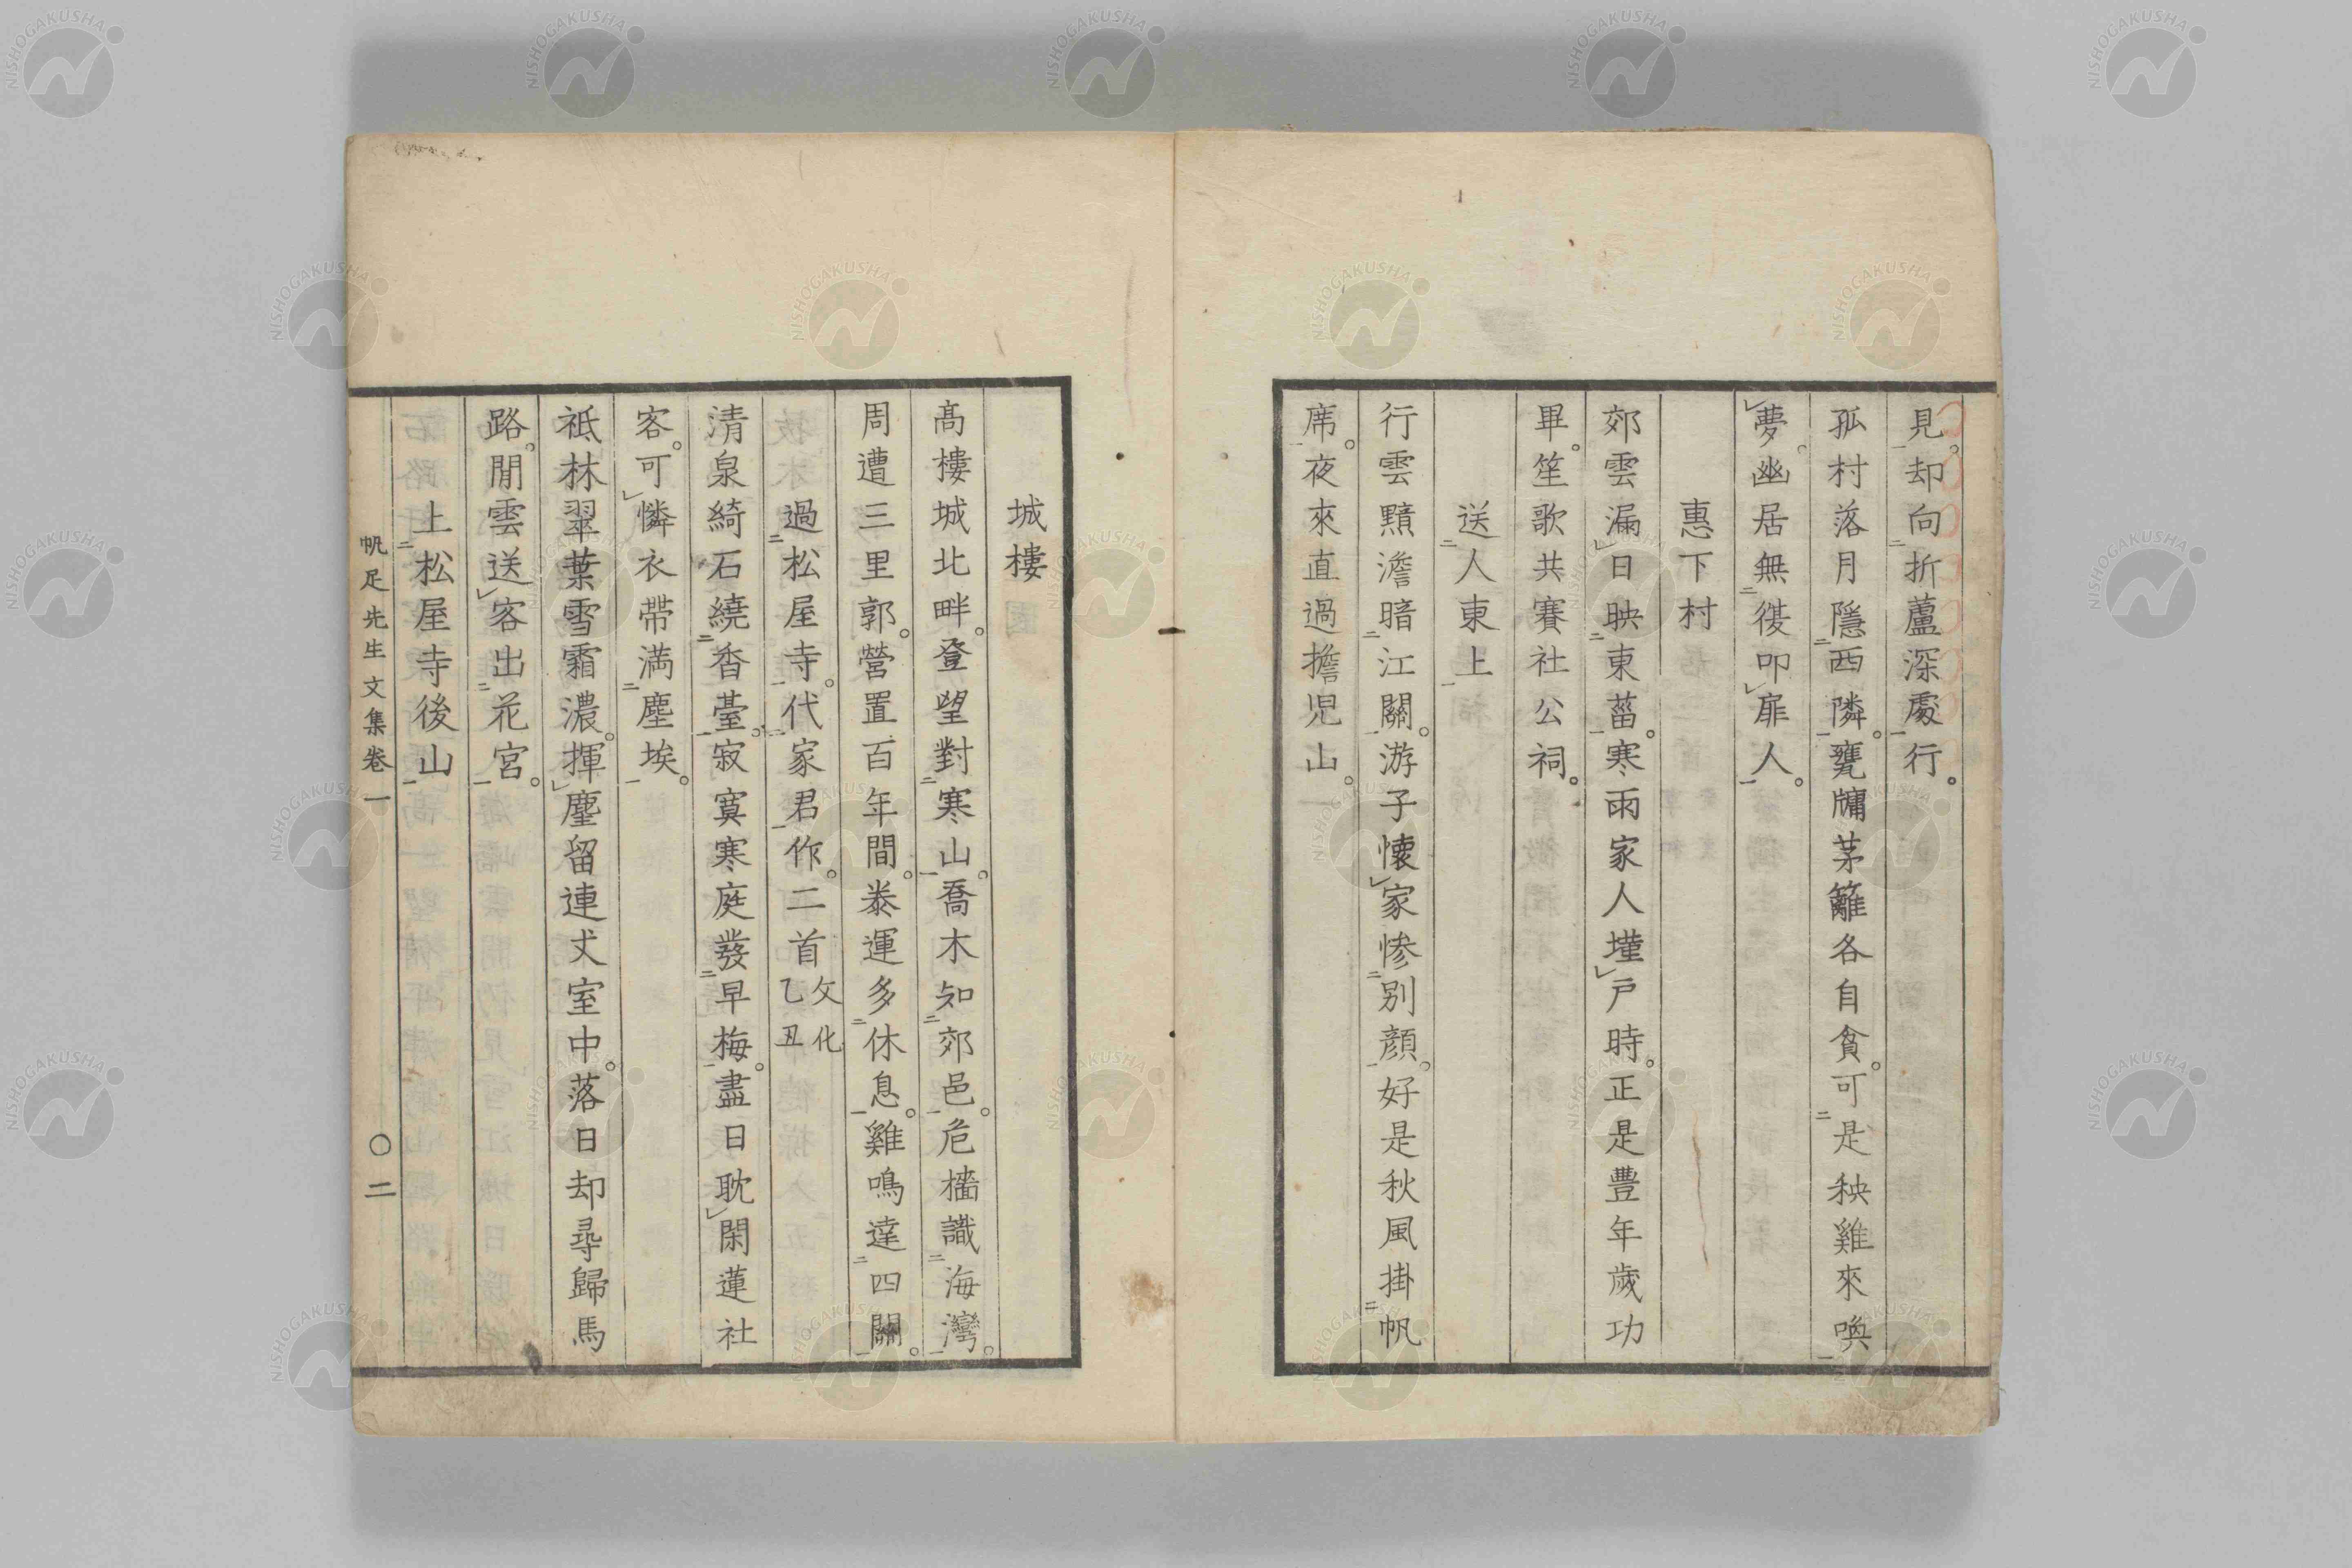 見。却向二折蘆深處一行。
孤村落月隱二西隣一。甕牗茅籬各自貧。可二是秧雞來喚一
夢。幽居無二復叩扉人一。
惠下村
郊雲漏日映二東菑一。寒雨家人墐戸時。正是豐年歲功
畢。笙歌共賽社公祠。
送二人東上一
行雲黯澹暗二江關一。游子懷家慘二別顏一。好是秋風掛二帆
席一。夜來直過擔児山。
城樓
高樓城北畔。登望對二寒山一。喬木知二郊邑一。危檣識二海灣一。
周遭三里郭。營置百年間。泰運多二休息一。雞鳴達二四關一。
過二松屋寺一。代二家君一作。二首文化乙丑
清泉綺石繞二香臺一。寂寞寒庭發二早梅一。盡日耽閑蓮社
客。可憐衣帶滿二塵埃一。
祗林翠葉雪霜濃。揮麈留連丈室中。落日却尋歸馬
路。閒雲送客出二花宮一。
上二松屋寺後山一
帆足先生文集卷一
〇二
NISHOGAKUSHA